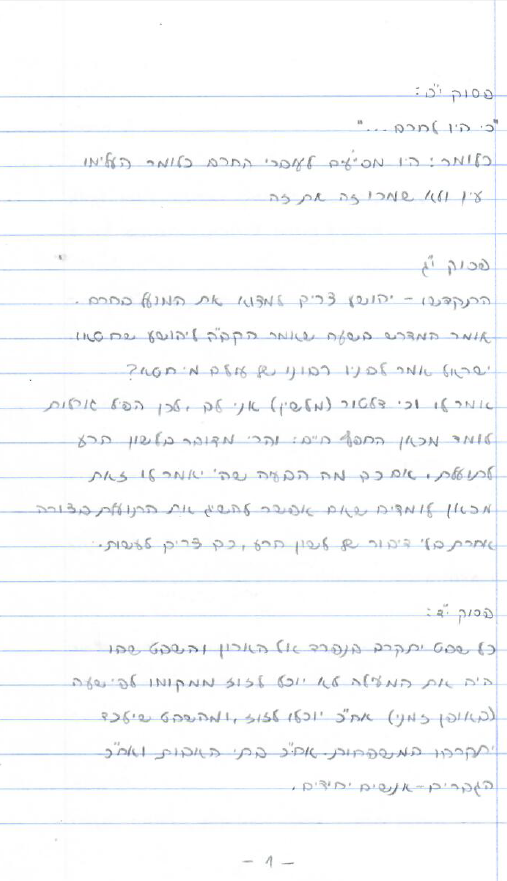 פסוק י"ב:
"כי היו לחרם..."
כלומר: היו מסייעים לעוברי החרם כלומר העלימו
עין ולא שמרו זה את זה
פסוק י"ג
התקדשו - יהושע צריך למצוא את המועל בחרם.
אומר המדרש בשעה שאומר הקב"ה ליהושע שחטאו
ישראל אמר לפניו רבונו של עולם מי חטא?
אומר לו וכי דלטור (מלשין) אני לך, לכן הפיל גורלות
לומד מכאן החפץ חיים: והרי מדובר בלשון הרע
לתועלת, אם כך מה הבעיה שה' יאמר לו זאת
מכאן לומדים שאם אפשר להשיג את התועלת בצורה
אחרת בלי דיבור של לשון הרע, כך צריך לעשות.
פסוק י"ד:
כל שבט יתקרב בנפרד אל הארון והשבט שבו
היה את המעילה לא יוכל לזוז ממקומו לפי שעה
(באופן זמני) אח"כ יוכלו לזוז, ומהשבט שילכד
יתקרבו המשפחות. אח"כ בתי האבות ואח"כ
הגברים - אנשים יחידים.
- 1 -